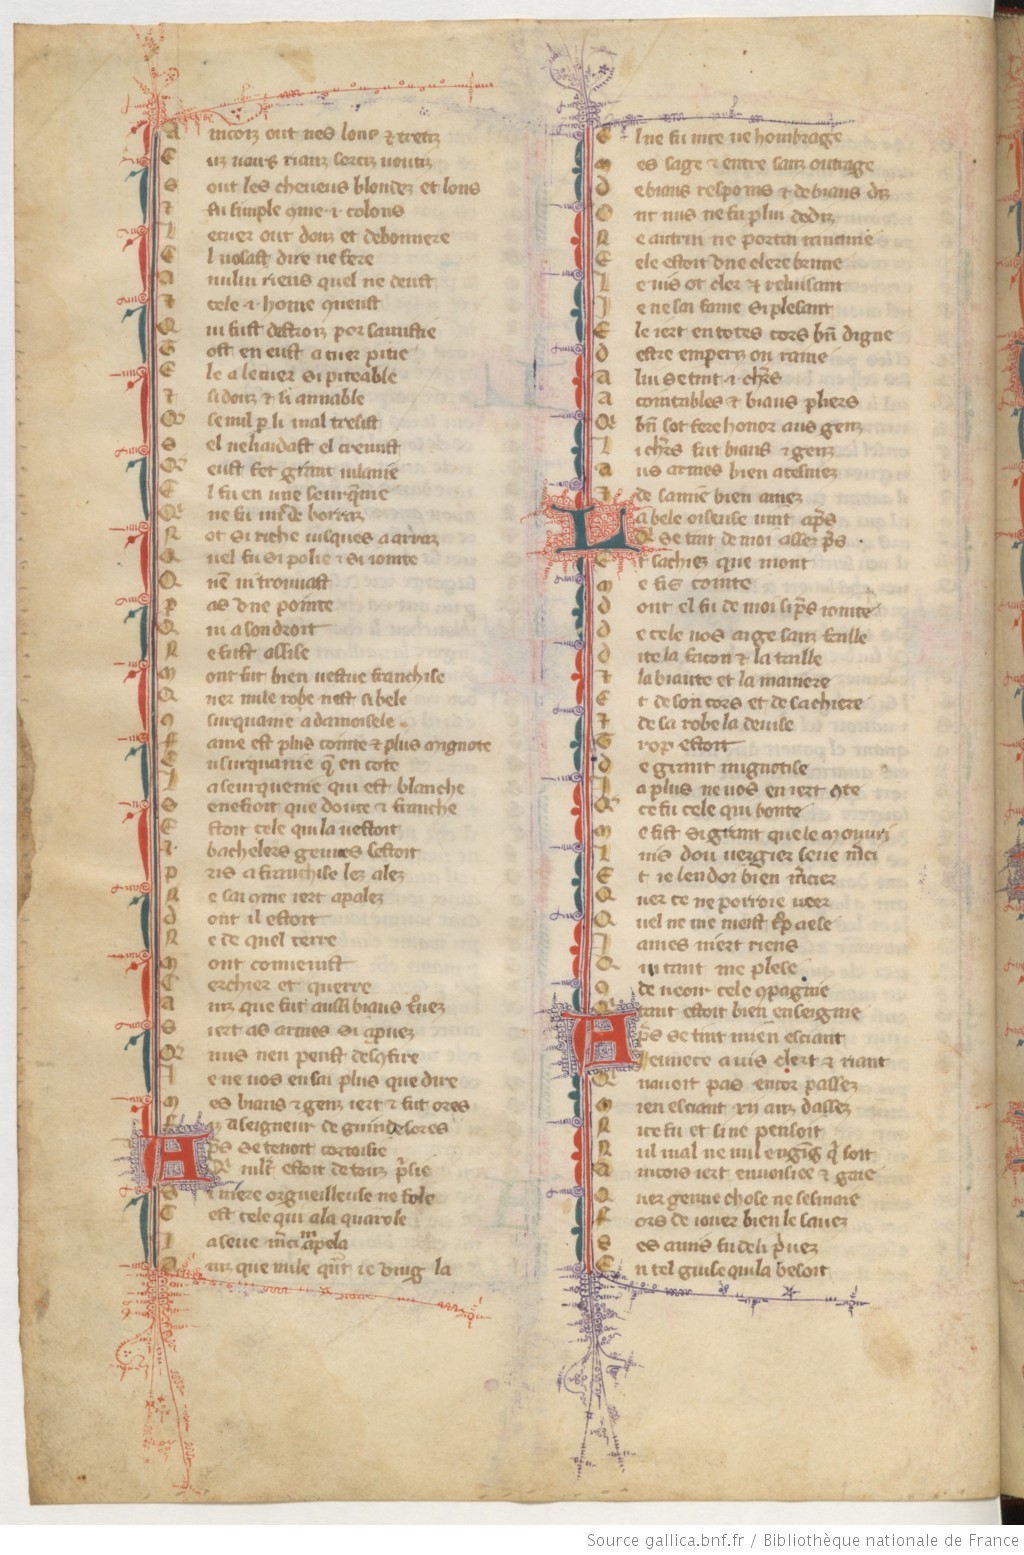 A incois out nes lonc & tretiz
E uz uairs rianz sorciz uoutiz
S out les cheueus blondez et lons
& fu simple 9me .i. colons
L e cuer out douz et debonnere
E l nosast dire ne fere
A nului riens quel ne deust
& cele .i. home 9neust
Q ui fust destroiz por samistie
T ost en eust a cuer pitie
E le a le cuer si piteable
& si douz & si amiable
Q se nul p li mal tresist
S el ne li aidast el cremist
Q eust fet grant uilanie
E l fu en une seurq̄nie
Q ne fu mie de borraz
N ot si riche iusques a arraz
Q uel fu si polie & si iointe
Q ne ni trouuast
P as dne pointe
Q ui a son droit
N e fust assise
M ont fut bien uestue franchise
Q ner nule robe nest si bele
Q surquanie a damoisele
F ame est plus cointe & plus mignote
E n surquanie q̄ en cote
L a seurquenie qui est blanche
S enefioit que douce & franche
E stoit cele qui la uestoit
.I. bachelers genues sestoit
P ris a franchise lez a lez
N e sai 9me iert apalez
D ont il estoit
N e de quel terre
M ont conuenist
C erchier et querre
A inz que fut aussi biaus t̄uez
S iert as armes si apuez
Q nus nen peust desc̄fire
I e ne uos en sai plus que dire
M es biaus & genz iert & fut ores
F iz a seigneur de guindesores
A ps se tenoit cortoisie
Q mlt estoit de touz p̄sie
S i niere orgueilleuse ne fole
C est cele qui a la quarole
L a seue m̄ci mapela
A inz que nule q̄nt ie uing la
E l ne fu nice ne honbrage
M es sage & entre sanz outrage
D e biaus respons & de biaus diz
O nt nus ne fu p lui dediz
N e autrui ne porta rancune
E ele estoit dne clere brune
L e uis ot cler & reluisant
I e ne sai fame si plesant
E le iert en totes cors bn̄ digne
D estre emperiz ou raine
A lui se tint .i. ch̄rs
A cointables & biaus pliers
Q bn̄ sot fere honor aus genz
L i ch̄rs fut biaus & genz
A us armes bien acesmez
& de samie bien amez
L a bele oiseuse uint ap̄s
Q se tint de moi assez p̄s
E t sachiez que mont
M e fis cointe
D ont el fu de moi si p̄s iointe
D e cele uos ai ge sanz faille
D ite la facon & la taille
& la biaute et la maniere
E t de son cors et de sa chiere
& de sa robe la deuise
T rop estoit
D e grant mignotise
I a plus ne uos en iert 9te
Q ce fu cele qui bonte
M e fist si grant que le mouuri
L uis dou uergier seue m̄ci
E t ie len doi bien m̄cier
Q uer ce ne porroie ueer
Q uel ne me meist t̄p aese
I ames niert riens
Q ui tant me plese
Q de ueoir cele 9pagnie
Q tant estoit bien enseignie
A p̄s se tint mien esciant
Ieunece a uis clert & riant
Q nauoit pas encor passez
M ien esciant xij anz dassez
N ice fu et si ne pensoit
N ul mal ne nul engig q̄ soit
A incois iert enuoisiee & gaie
Q uer genne chose ne sesmaie
F ors de iouer bien le sauez
S es amis fu de li p̄uez
E n tel guise quil a besoit
Source gallica.bnf.fr / Bibliothèque nationale de France